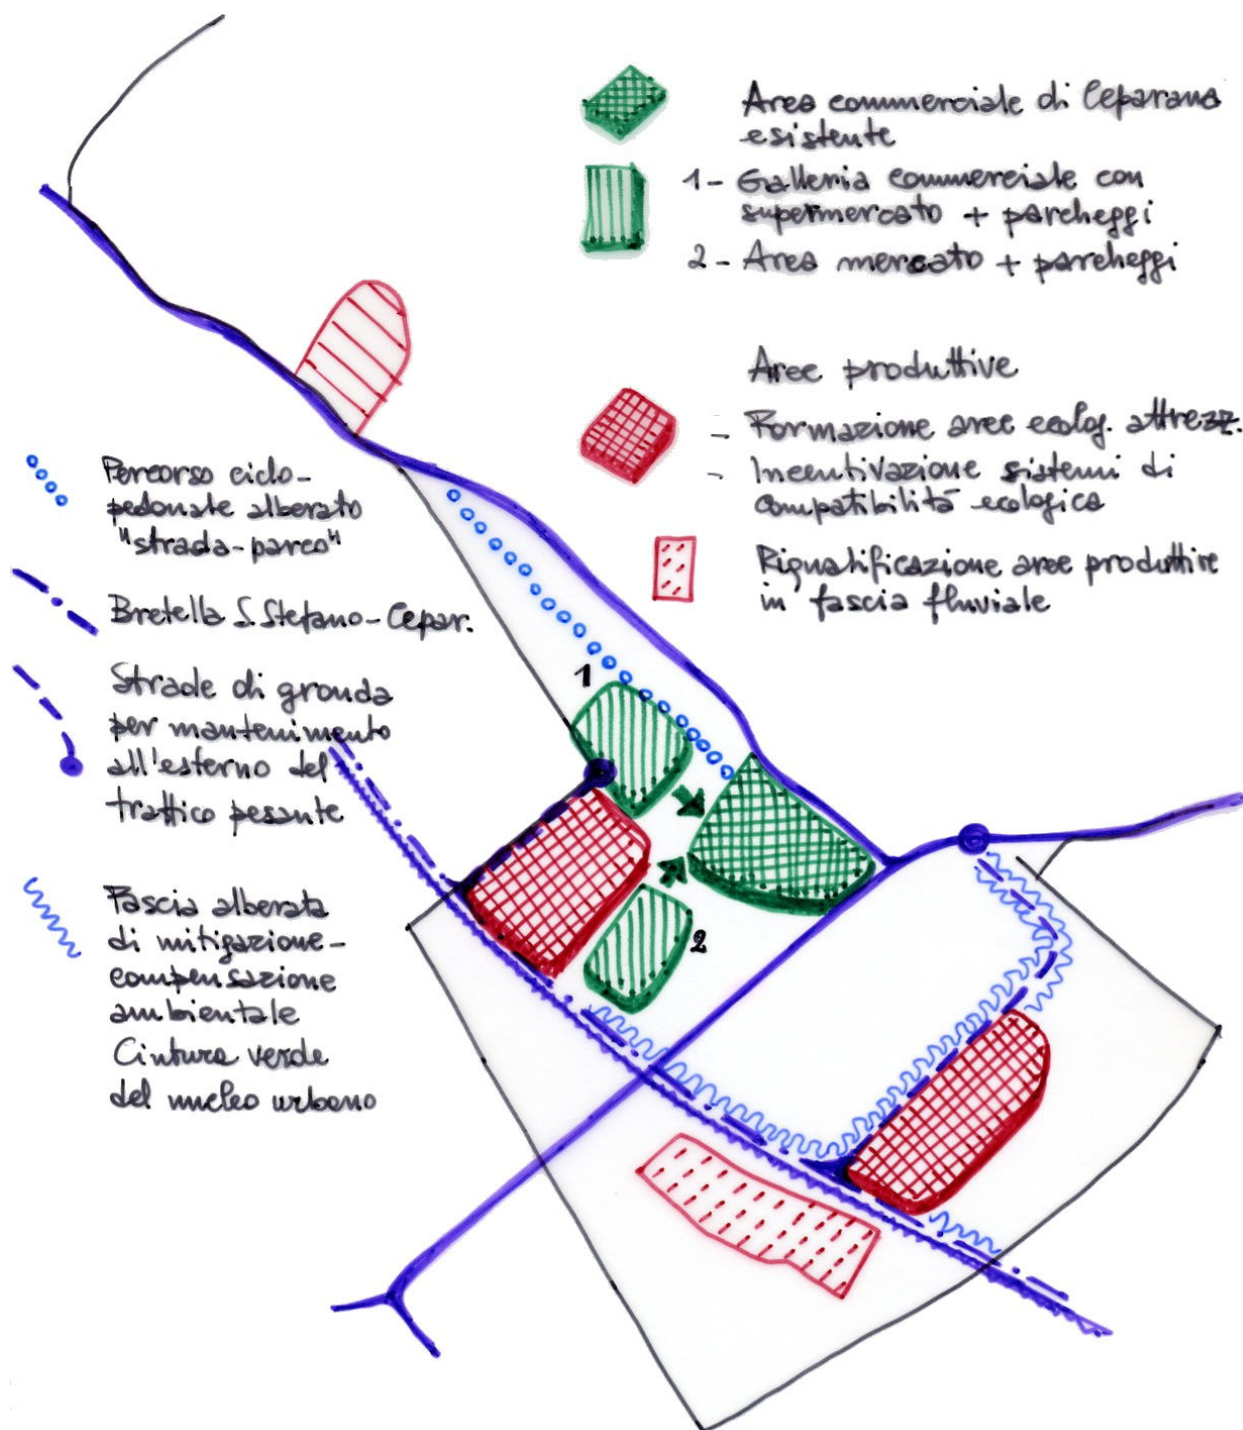 Area commerciale di Ceparana
esistente
1- Galleria commerciale con
supermercato + parcheggi
2- Area mercato + parcheggi
Aree produttive
- Formazione aree ecolog. attrezz.
- Incentivazione sistemi di
compatibilità ecologica
Riqualificazione aree produttive
in fascia fluviale
Percorso ciclo-
pedonale alberato
"strada-parco"
Bretella S. Stefano-Cepar.
Strade di gronda
per mantenimento
all'esterno del
traffico pesante
Fascia alberata
di mitigazione-
compensazione
ambientale
Cintura verde
del nucleo urbano
1
2